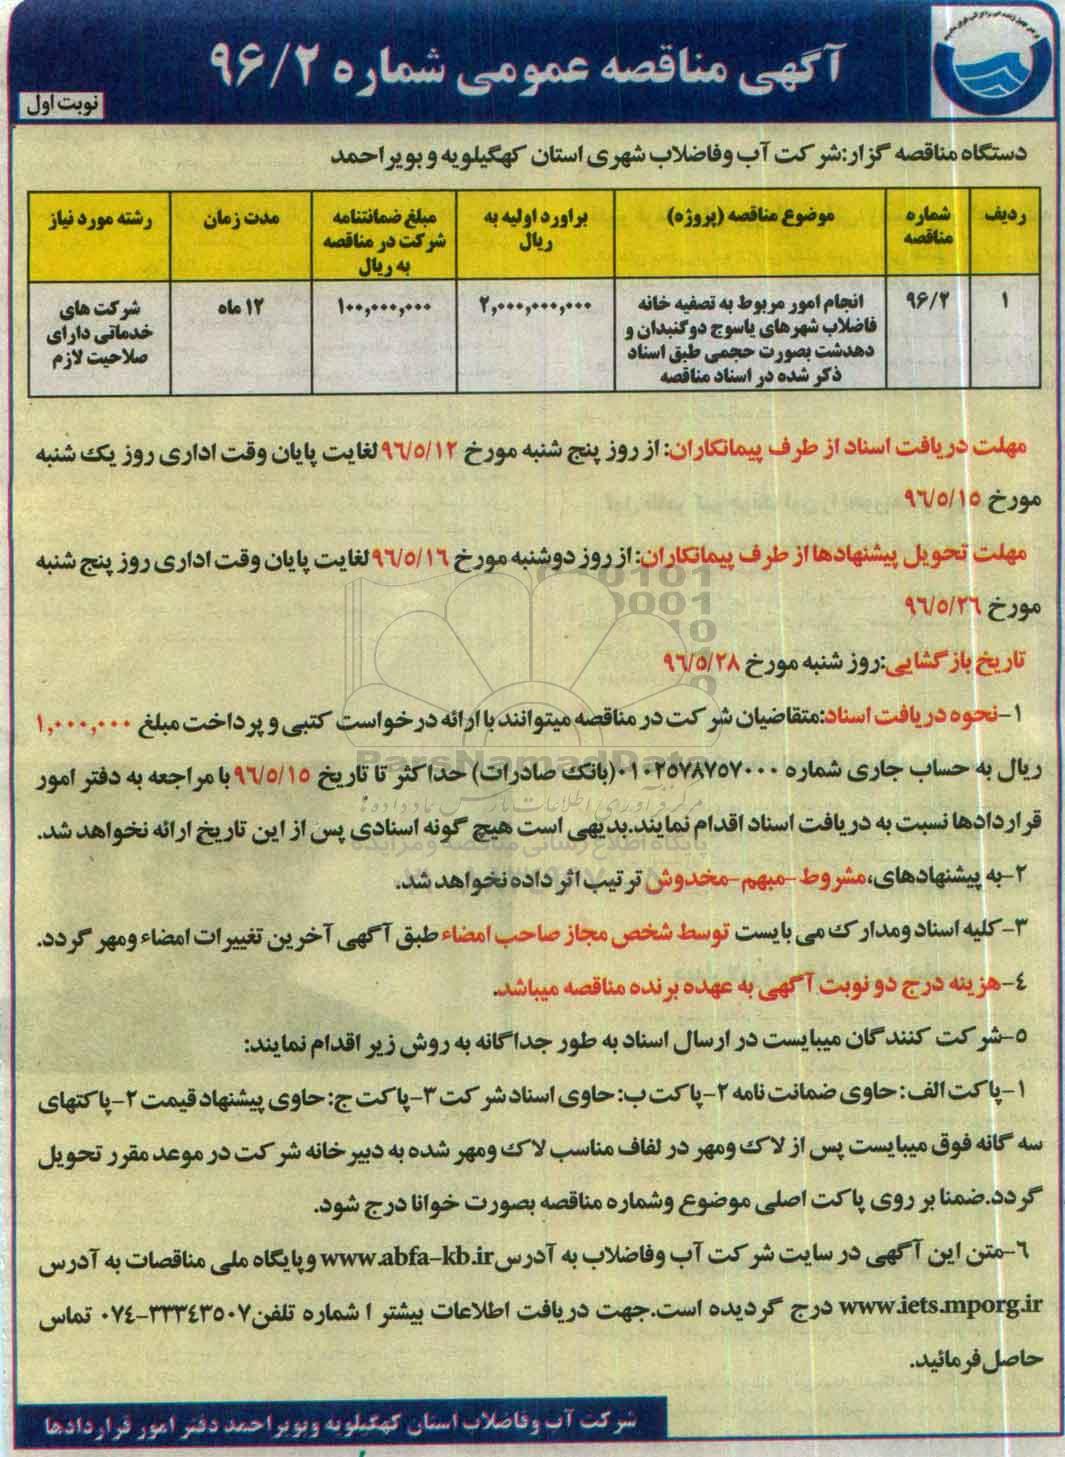 آگهی مناقصه عمومی شماره ۹۶/۲
نوبت اول
دستگاه مناقصه گزار:شرکت آب وفاضلاب شهری استان کهگیلویه و بویراحمد
ردیف
شماره مناقصه
موضوع مناقصه (پروژه)
براورد اولیه به ریال
مبلغ ضمانتنامه شرکت در مناقصه به ریال
مدت زمان
رشته مورد نیاز
۱
۹۶/۲
انجام امور مربوط به تصفیه خانه
فاضلاب شهرهای یاسوج دوگنبدان و
دهدشت بصورت حجمی طبق اسناد
ذکر شده در اسناد مناقصه
۲,۰۰۰,۰۰۰,۰۰۰
۱۰۰,۰۰۰,۰۰۰
۱۲ ماه
شرکت های
خدماتی دارای
صلاحیت لازم
مهلت دریافت اسناد از طرف پیمانکاران: از روز پنج شنبه مورخ ۹۶/۵/۱۲ لغایت پایان وقت اداری روز یک شنبه
مورخ ۹۶/۵/۱۵
مهلت تحویل پیشنهادها از طرف پیمانکاران: از روز دوشنبه مورخ ۹۶/۵/۱۶ لغایت پایان وقت اداری روز پنج شنبه
مورخ ۹۶/۵/۲۶
تاریخ بازگشایی:روز شنبه مورخ ۹۶/۵/۲۸
۱-نحوه دریافت اسناد:متقاضیان شرکت در مناقصه میتوانند با ارائه درخواست کتبی و پرداخت مبلغ ۱,۰۰۰,۰۰۰
ریال به حساب جاری شماره ۰۱۰۲۵۷۸۷۵۷۰۰۰(بانک صادرات) حداکثر تا تاریخ ۹۶/۵/۱۵ با مراجعه به دفتر امور
قراردادها نسبت به دریافت اسناد اقدام نمایند.بدیهی است هیچ گونه اسنادی پس از این تاریخ ارائه نخواهد شد.
۲-به پیشنهادهای،مشروط -مبهم-مخدوش ترتیب اثر داده نخواهد شد.
۳-کلیه اسناد ومدارک می بایست توسط شخص مجاز صاحب امضاء طبق آگهی آخرین تغییرات امضاء ومهر گردد.
٤-هزینه درج دو نوبت آگهی به عهده برنده مناقصه میباشد.
۵-شرکت کنندگان میبایست در ارسال اسناد به طور جداگانه به روش زیر اقدام نمایند:
۱-پاکت الف: حاوی ضمانت نامه ۲-پاکت ب: حاوی اسناد شرکت ۳-پاکت ج: حاوی پیشنهاد قیمت ۲-پاکتهای
سه گانه فوق میبایست پس از لاک ومهر در لفاف مناسب لاک ومهر شده به دبیرخانه شرکت در موعد مقرر تحویل
گردد.ضمنا بر روی پاکت اصلی موضوع وشماره مناقصه بصورت خوانا درج شود.
٦-متن این آگهی در سایت شرکت آب وفاضلاب به آدرس www.abfa-kb.ir و پایگاه ملی مناقصات به آدرس
www.iets.mporg.ir درج گردیده است.جهت دریافت اطلاعات بیشتر ا شماره تلفن ۳۳۳٤۳۵۰۷-۰۷٤ تماس
حاصل فرمائید.
شرکت آب وفاضلاب استان کهگیلویه وبویراحمد دفتر امور قراردادها